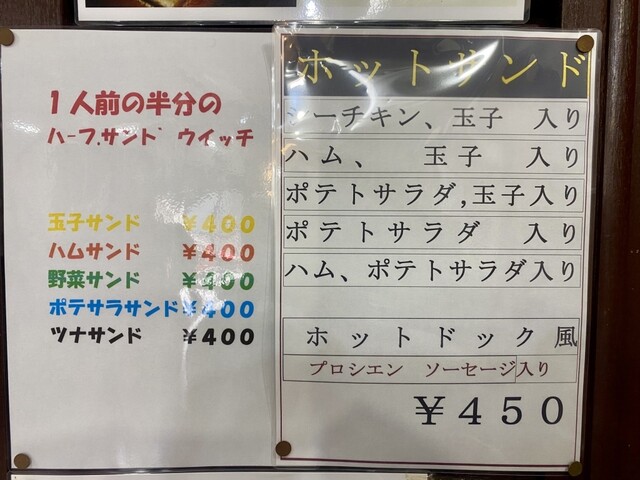 １人前の半分の
ハーフ.サンドウイッチ
玉子サンド ￥400
ハムサンド ￥400
野菜サンド ￥400
ポテサラサンド ￥400
ツナサンド ￥400
ホットサンド
シーチキン、玉子 入り
ハム、 玉子 入り
ポテトサラダ,玉子入り
ポテトサラダ 入り
ハム、ポテトサラダ入り
ホットドック風
プロシエン ソーセージ入り
￥４５０